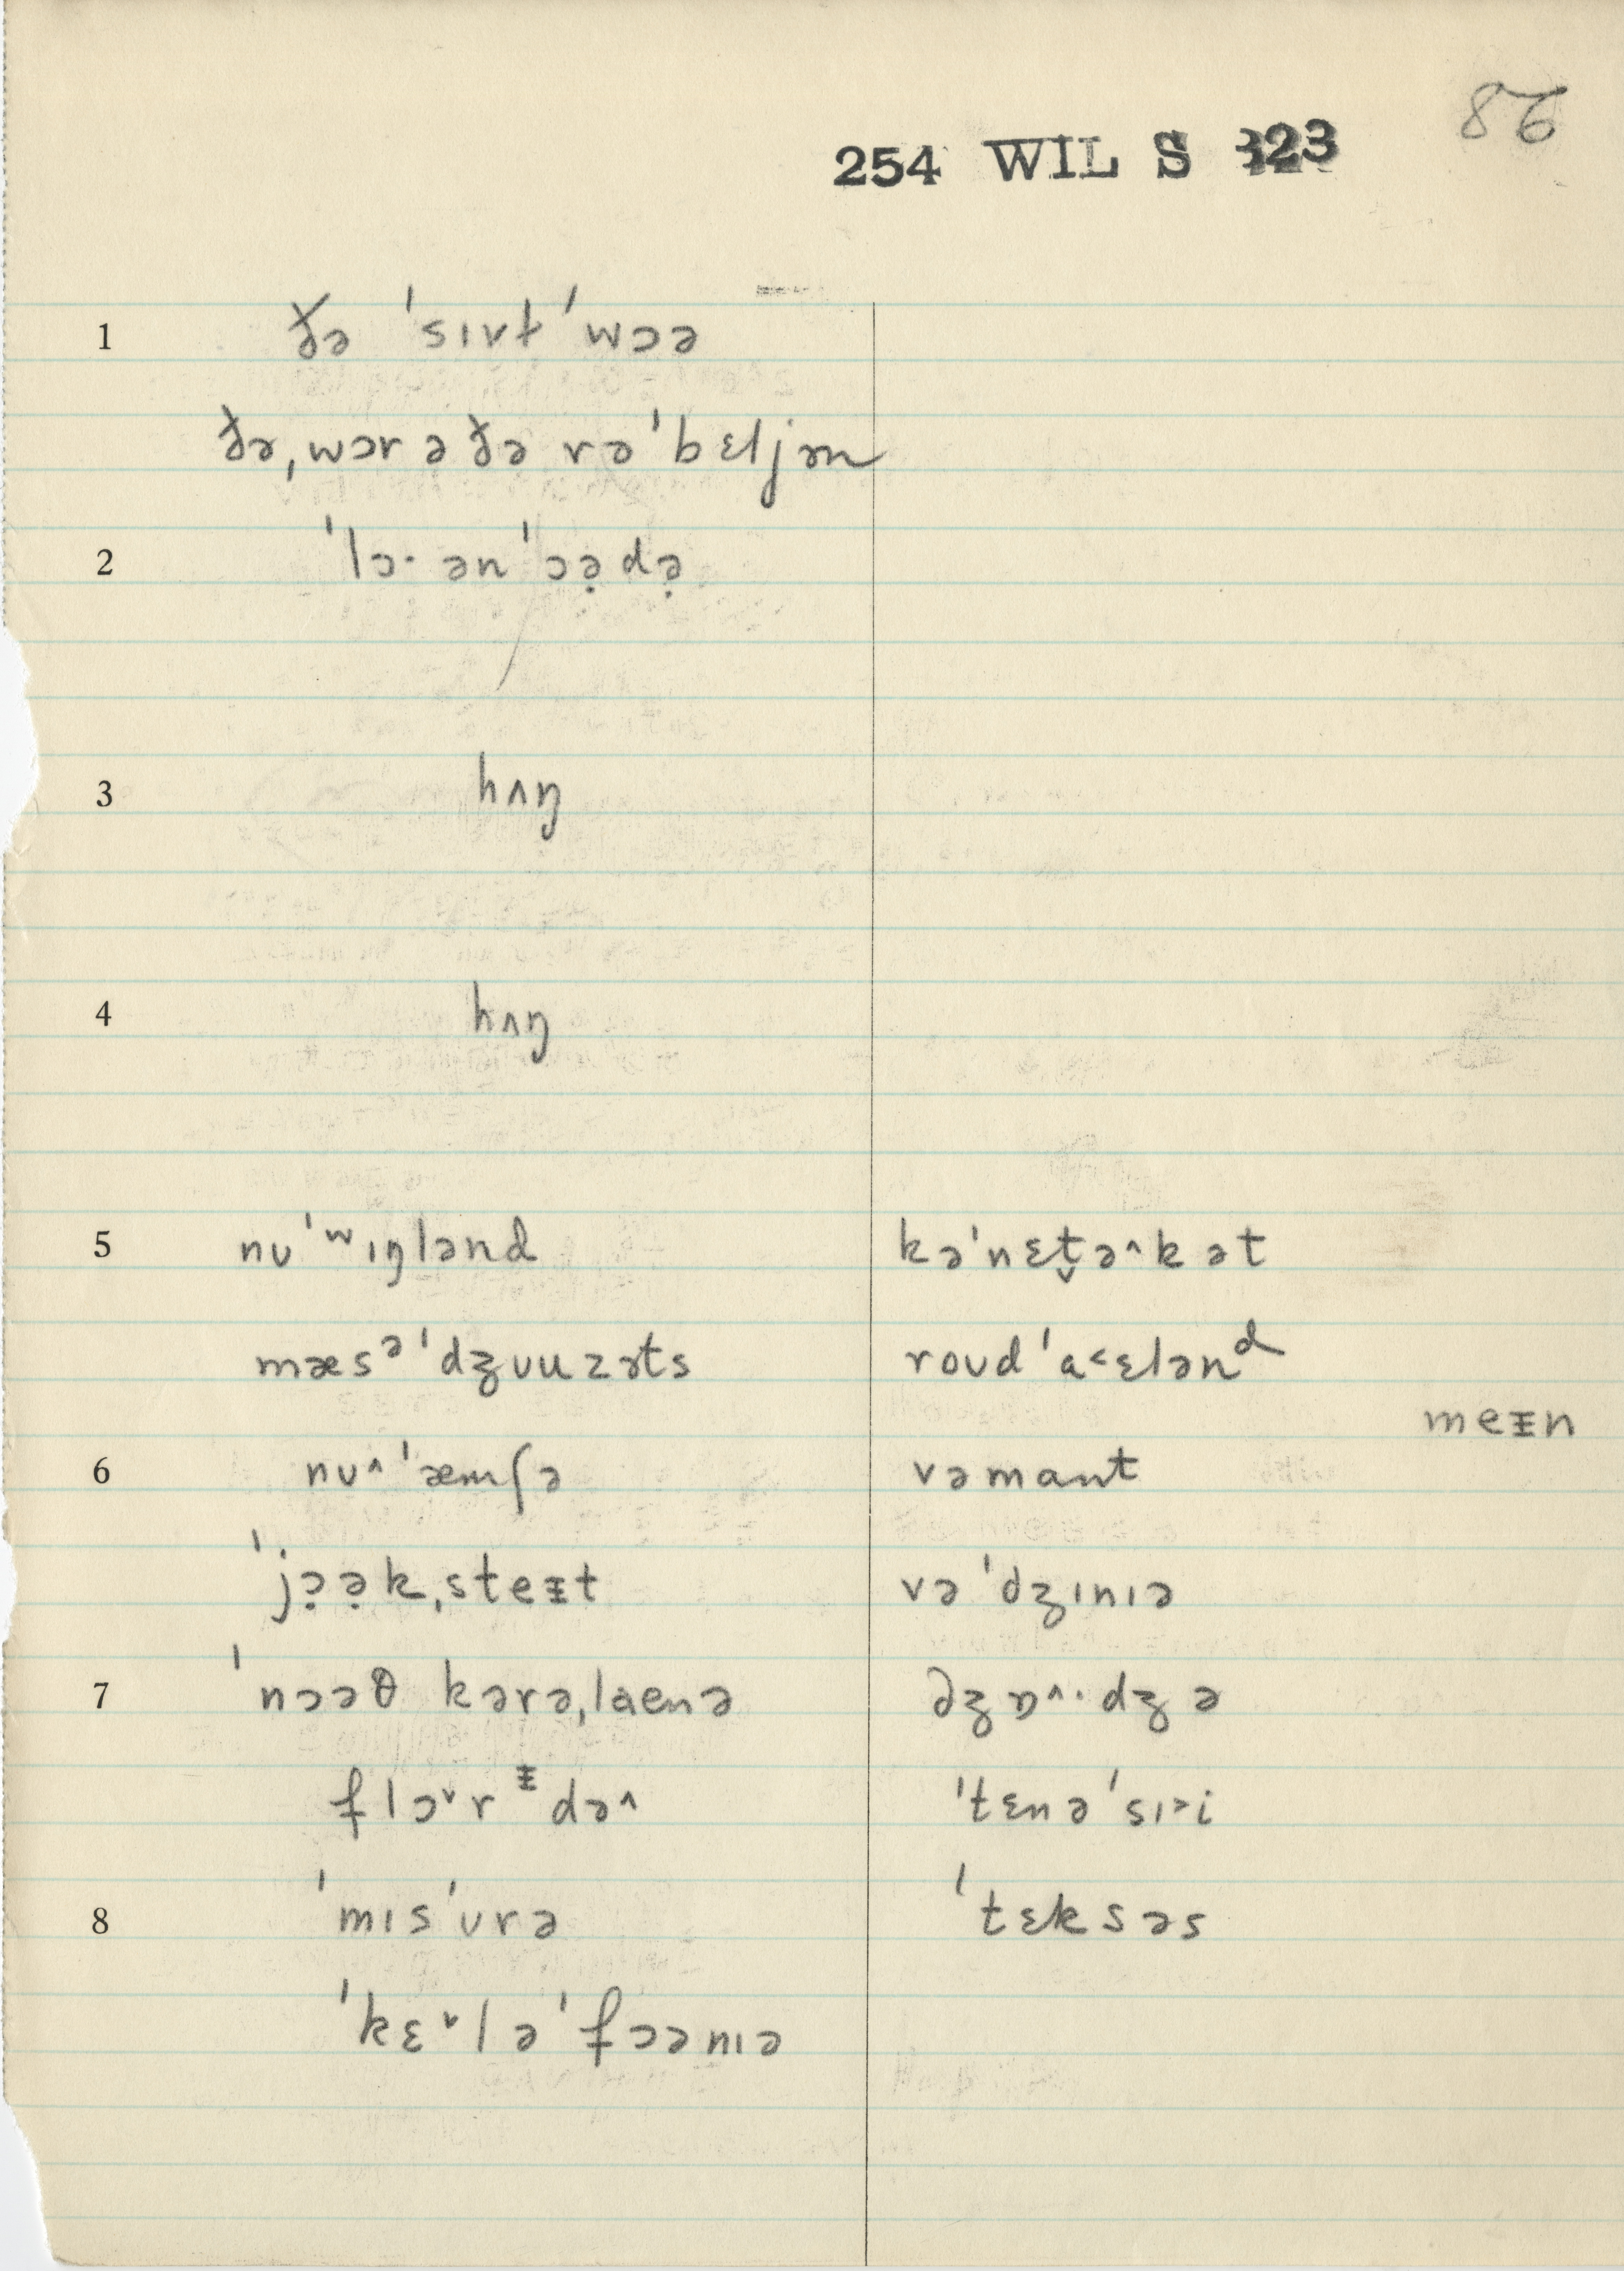 86
254 WIL S 323
1 ðə ˈsɪvɫ ˈwɔə
ðə ˌwɔr ə ðə rəˈbɛljən
2 ˈlɔ· ən ˈɔə̣də̣
3 hʌŋ
4 hʌŋ
5 nʊˈʷɪŋlənd kəˈnɛt̬ə^kət
mæsᵊˈdʒʊuzəts roʊdˈa<ɛlənᵈ
meᵻn
6 nʊ^ˈæmʃə vəmant
ˈjɔ̣ə̣kˌsteᵻt vəˈdʒɪnɪə
7 ˈnɔəθ kərəˌlaenə dʒɒ^·dʒə
flɔ˅rᵻdə^ ˈtɛnəˈsɪ>i
8 ˈmɪsˈʊrə ˈtɛksəs
ˈkɛ˅ləˈfɔənɪə